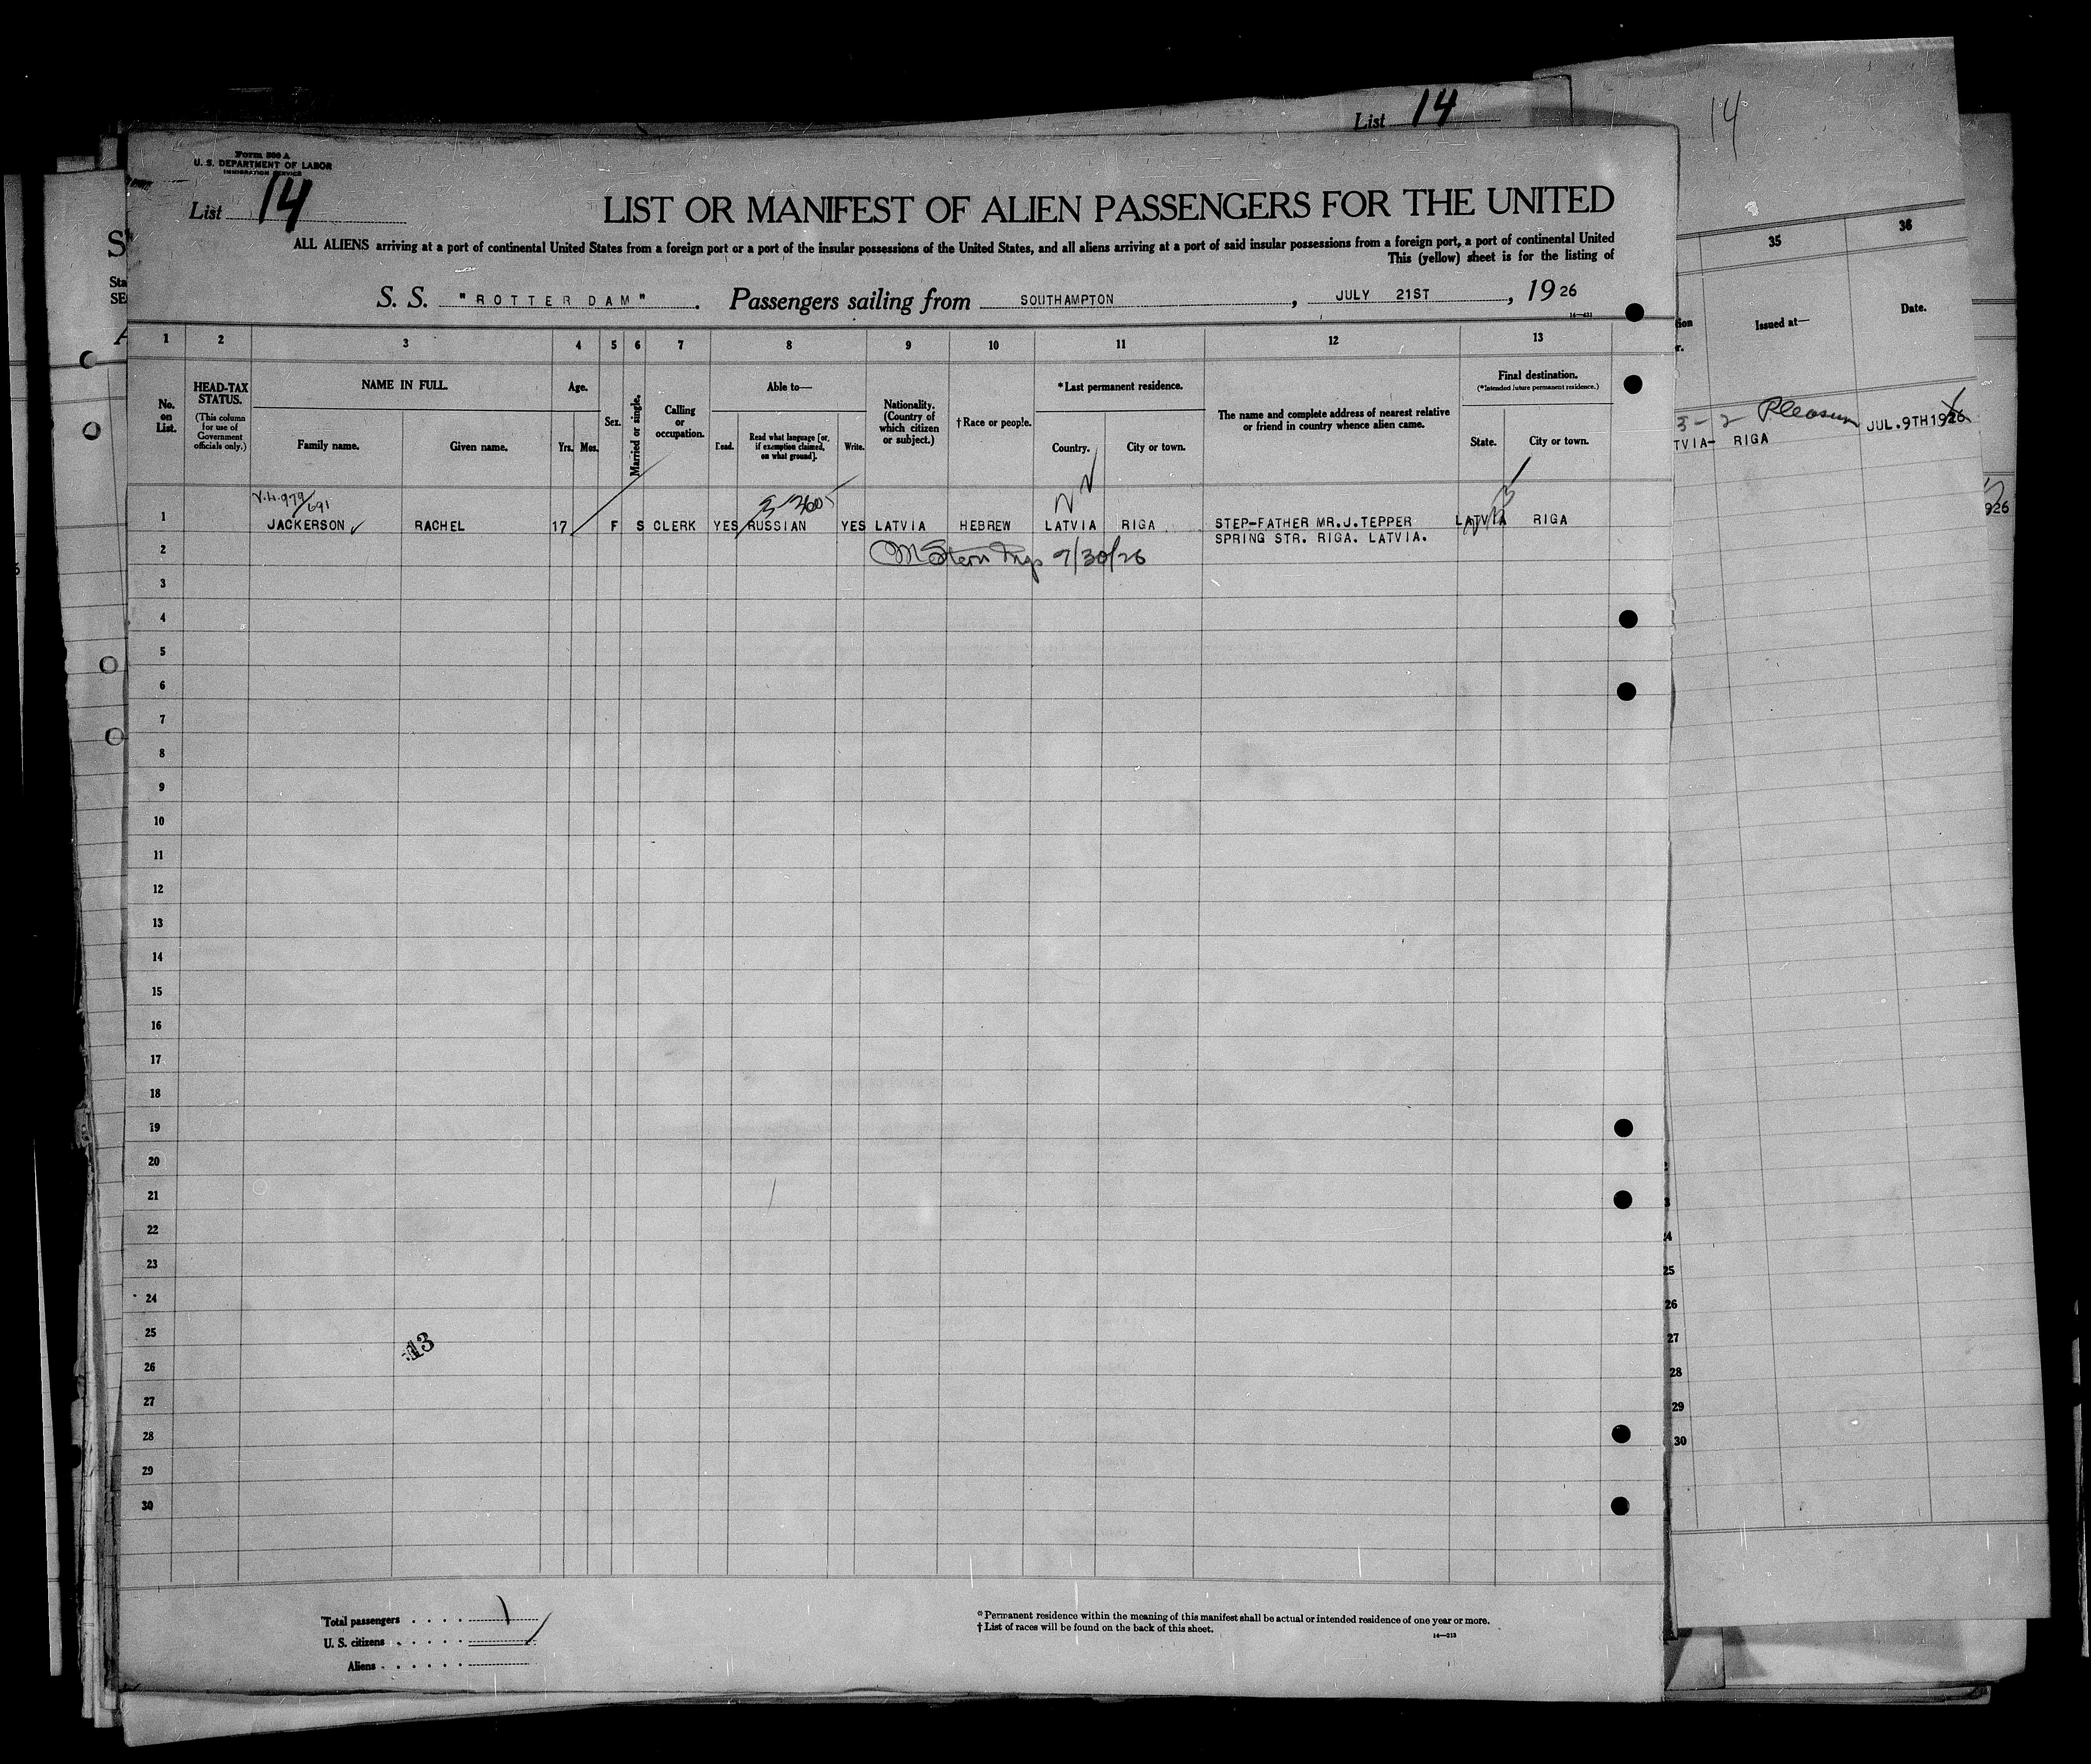 List 14
14
Form 500 A
U. S. DEPARTMENT OF LABOR
IMMIGRATION SERVICE
List 14
LIST OR MANIFEST OF ALIEN PASSENGERS FOR THE UNITED
ALL ALIENS arriving at a port of continental United States from a foreign port or a port of the insular possessions of the United States, and all aliens arriving at a port of said insular possessions from a foreign port, a port of continental United
This (yellow) sheet is for the listing of
S. S. "ROTTERDAM". Passengers sailing from SOUTHAMPTON, JULY 21ST, 1926
1 2 3 4 5 6 7 8 9 10 11 12 13
No. on List.
HEAD-TAX STATUS.
(This column for use of Government officials only.)
NAME IN FULL.
Family name. Given name.
Age.
Yrs. Mos.
Sex.
Married or single.
Calling or occupation.
Able to—
Read. Read what language [or, if exemption claimed, on what ground]. Write.
Nationality. (Country of which citizen or subject.)
†Race or people.
*Last permanent residence.
Country. City or town.
The name and complete address of nearest relative or friend in country whence alien came.
Final destination.
(*Intended future permanent residence.)
State. City or town.
979/691
1 JACKERSON RACHEL 17 F S CLERK YES RUSSIAN YES LATVIA HEBREW LATVIA RIGA STEP-FATHER MR.J.TEPPER LATVIA RIGA
SPRING STR. RIGA. LATVIA.
2 7/30/26
3
4
5
6
7
8
9
10
11
12
13
14
15
16
17
18
19
20
21
22
23
24
25
26
27
28
29
30
13
Total passengers 1
U. S. citizens
Aliens
*Permanent residence within the meaning of this manifest shall be actual or intended residence of one year or more.
†List of races will be found on the back of this sheet.
14—213
35 36
Issued at— Date.
3-2 Pleasure
TVIA- RIGA JUL.9TH1926
926
24
25
26
27
28
29
30